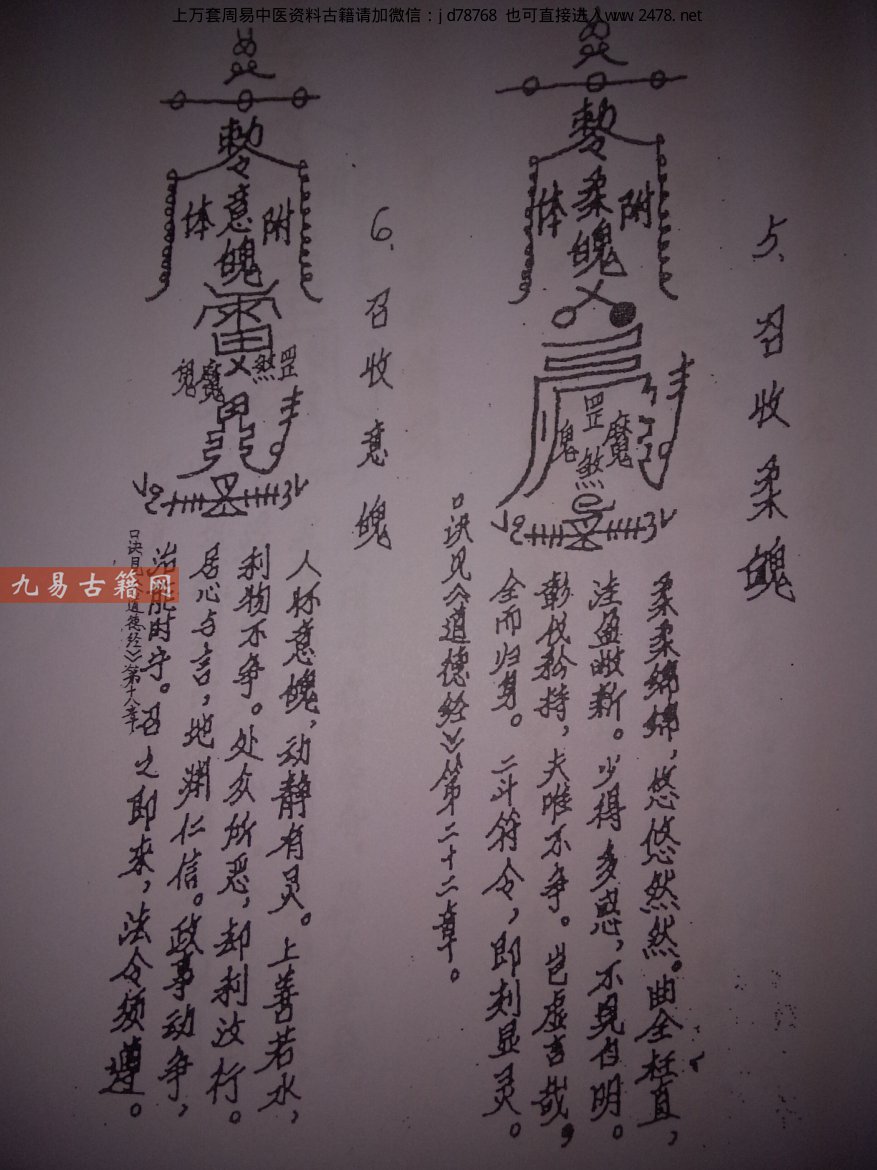 上万套周易中医资料古籍请加微信：jd78768 也可直接进入www.2478.net
5、召收柔魄
敕令
柔魄
附体
罡煞
魔鬼
柔柔绵绵，悠悠然然。曲全枉直，
洼盈敝新。少得多惑，不見自明。
彰伐矜持，夫唯不争。岂虚言哉，
全而归身。二斗符令，即刻显灵。
口诀见《道德经》第二十二章。
6、召收意魄
敕令
意魄
附体
罡煞
魔鬼
人脉意魄，动静有灵。上善若水，
利物不争。处众所恶，却利波行。
居心与言，地渊仁信。政事动争，
治能时守。召之即来，法令须遵。
口诀见《道德经》第十八章
九易古籍网